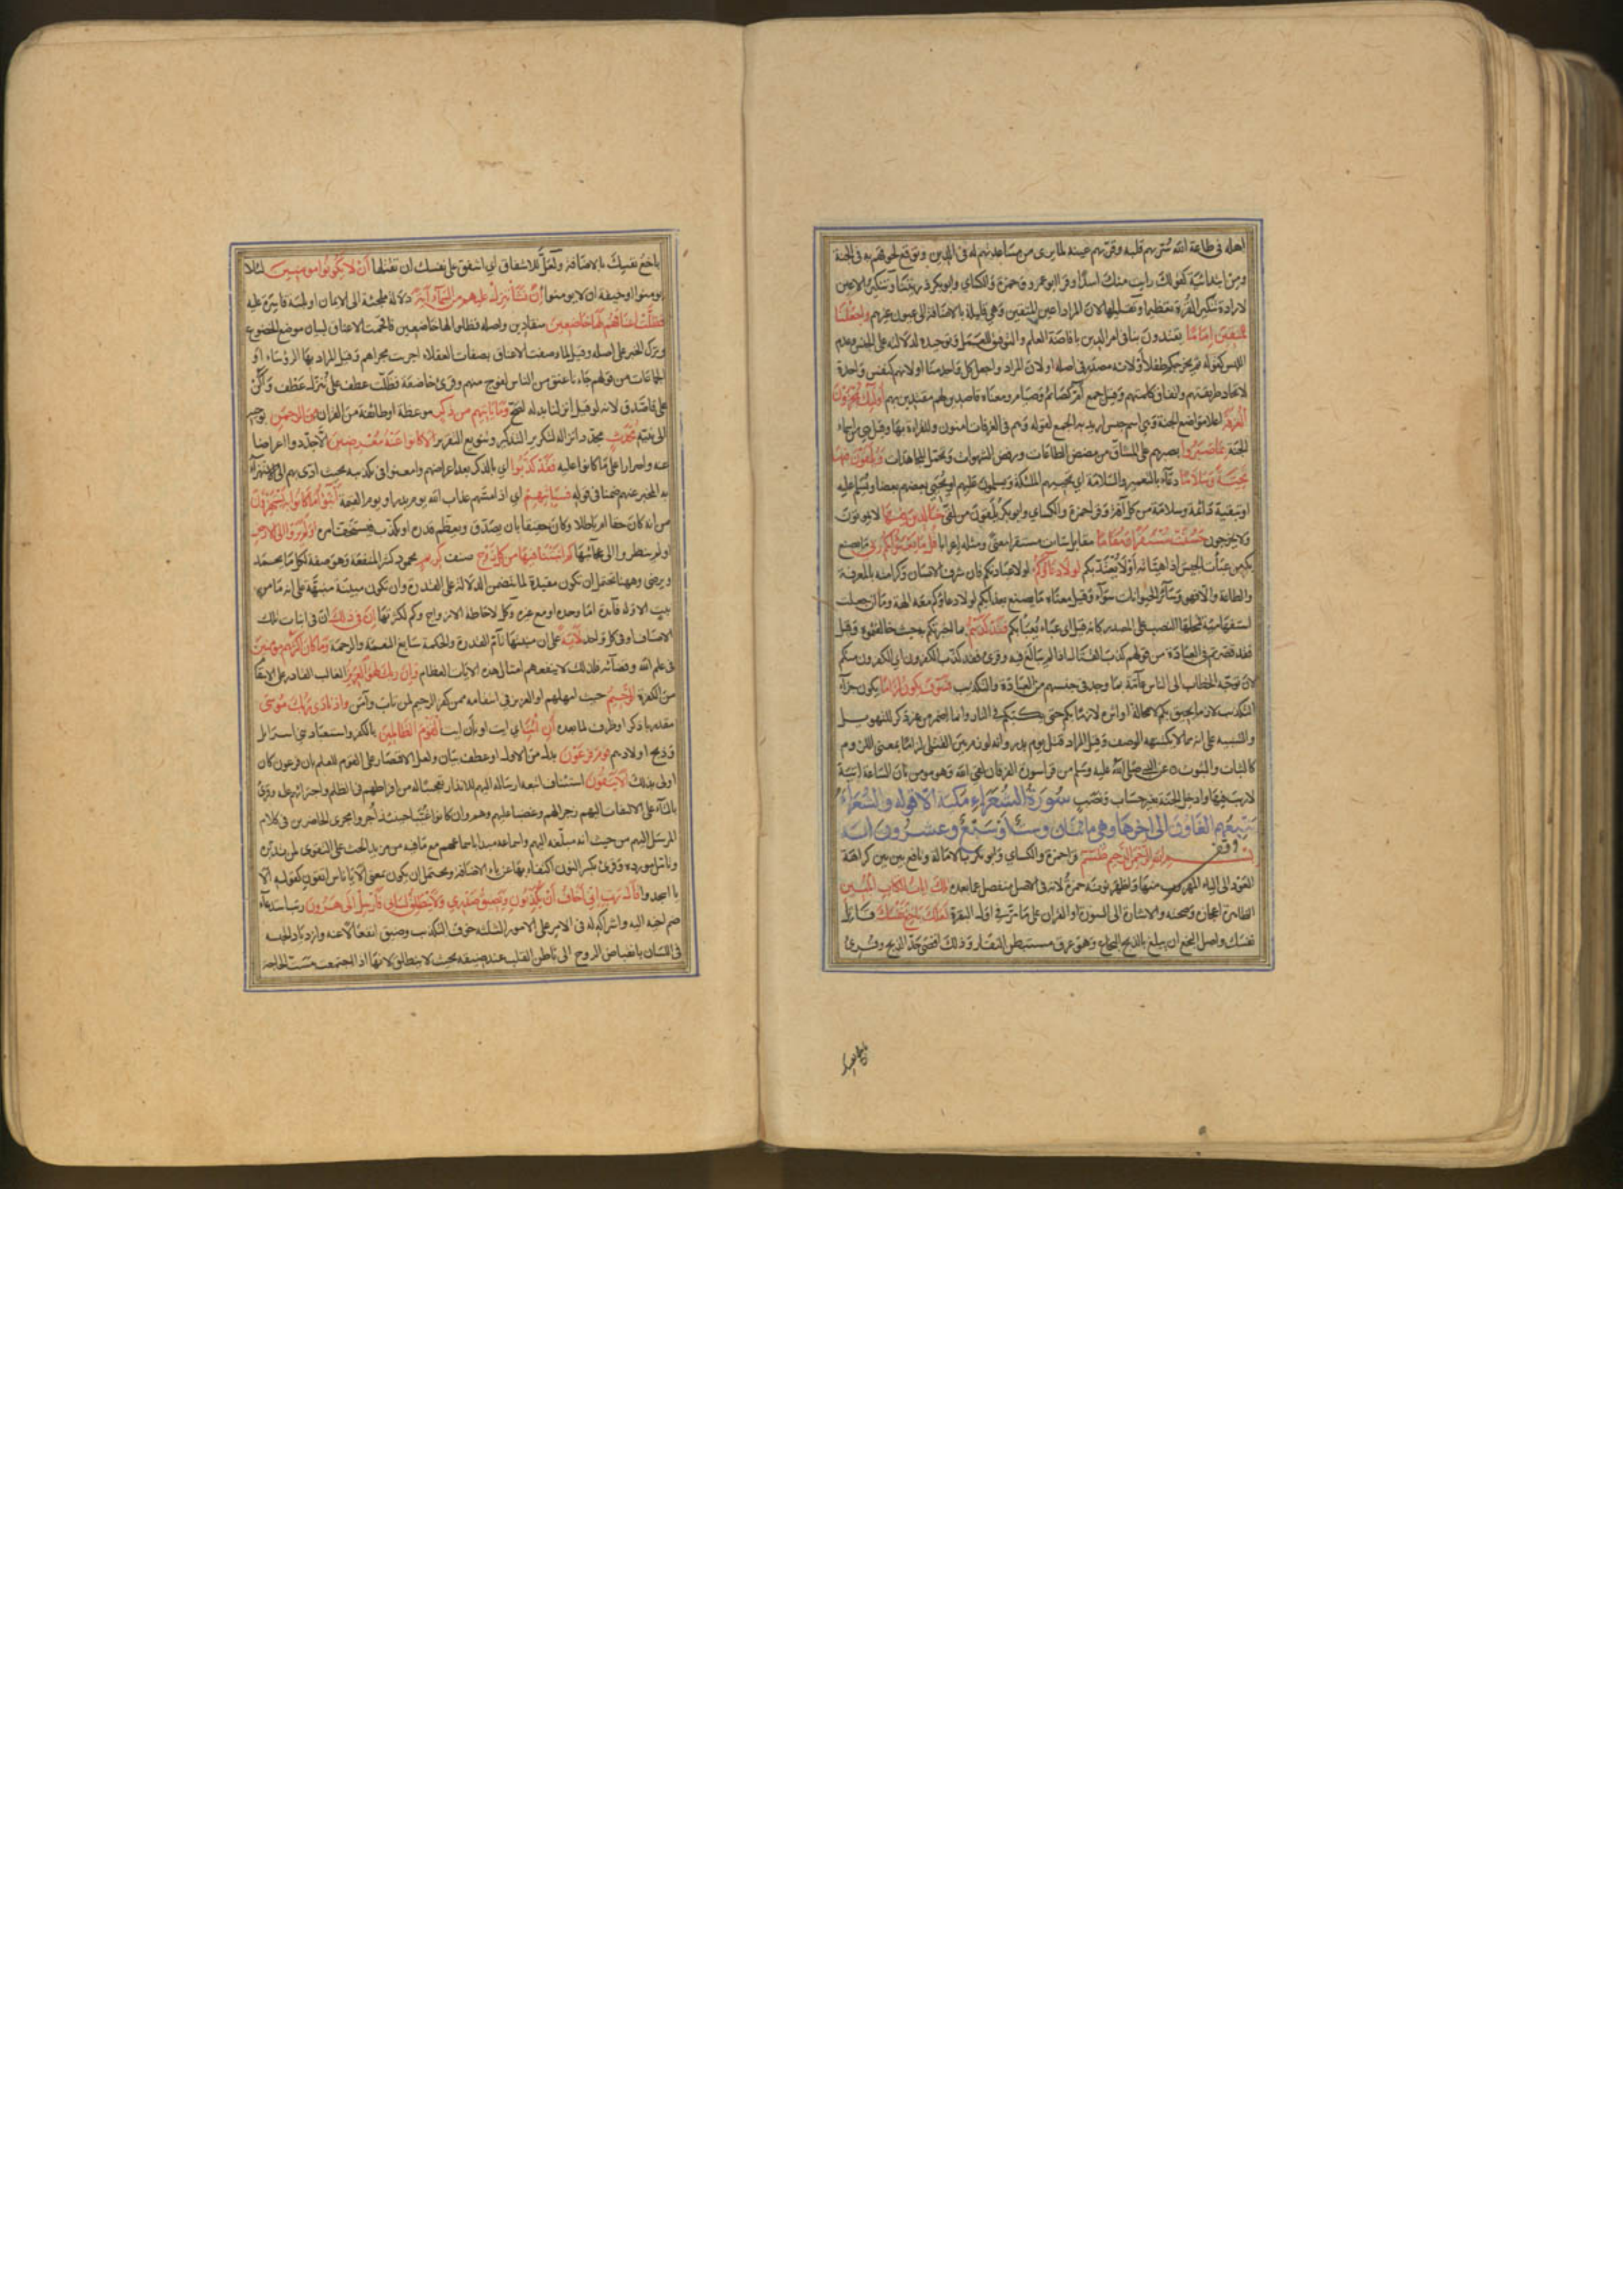 اهله فى طاعة الله سُرّ بهم قلبه وقرّ بهم عينه لما يرى من مساعدتهم له فى الدين وتوقع لحوقهم به فى الجنة
ومن ابتدائية كقولك رايت منك اسدًا وقرا ابو عمرو وحمزة والكسائي وابو بكر ذريتنا وتنكير الاعين
لارادة تنكير القرة تعظيما وتقليلها لان المراد اعين المتقين وهي قليلة بالاضافة الى عيون غيرهم واجعلنا
للمتقين اماما يقتدون بنا فى امر الدين بافاضة العلم والتوفيق للعمل وتوحيده لدلالته على الجنس وعدم
اللبس كقوله ثم يخرجكم طفلا أو لانه مصدر فى اصله او لان المراد واجعل كل واحد منا او لانهم كنفس واحدة
لاتحاد طريقتهم واتفاق كلمتهم وقيل جمع آمّ كصائم وصيام ومعناه قاصدين لهم مقتدين بهم اولئك يجزون
الغرفة اعلا مواضع الجنة وهي اسم جنس اريد به الجمع لقوله وهم فى الغرفات امنون وللقراءة بها وقيل هي من اسماء
الجنة بما صبروا بصبرهم على المشاق من مضض الطاعات ورفض الشهوات وتحمل المجاهدات ويلقون فيها
تحية وسلاما دعاء بالتعمير والسلامة اي يحييهم الملئكة ويسلمون عليهم او يحيي بعضهم بعضا ويسلم عليه
او تبقية دائمة وسلامة من كل آفة وقرا حمزة والكسائي وابو بكر يلقون من لقى خالدين فيها لا يموتون
ولا يخرجون حسنت مستقرا ومقاما مقابل ساءت مستقرا معنى ومثله اعرابا قل ما يعبؤا بكم ربي ما يصنع
بكم من عبأت الجيش اذا هيأته أو لا يعتدّ بكم لولا دعاؤكم لولا عبادتكم فان شرف الانسان وكرامته بالمعرفة
والطاعة والا فهو وسائر الحيوانات سواء وقيل معناه ما يصنع بعذابكم لولا دعاؤكم معه الهة وما ان جعلت
استفهامية فمحلها النصب على المصدر كانه قيل اي عباء يعبأ بكم فقد كذبتم بما اخبرتكم به حيث خالفتموه وقيل
فقد قصرتم فى العبادة من قولهم كذب القتال اذا لم يبالغ فيه وقرئ فقد كذب الكفرون اي الكفرون منكم
لان توجه الخطاب الى الناس عامة بما وجد فى جنسهم من العبادة والتكذيب فسوف يكون لزاما يكون جزاء
التكذيب لازما يحيق بكم لا محالة او اثره لازما بكم حتى يكبكم فى النار وانما اضمر من غير ذكر للتهويل
والتنبيه على انه مما لا يكتنهه الوصف وقيل المراد قتل يوم بدر وانه لوزم بين القتلى لزاما بمعنى اللزوم
كالثبات والثبوت عن النبي صلى الله عليه وسلم من قرا سورة الفرقان لقى الله وهو مومن بان الساعة اتية
لا ريب فيها وادخل الجنة بغير حساب ونصب سورة الشعراء مكية الا قوله والشعراء
يتبعهم الغاون الى اخرها وهي مائتان وست او سبع وعشرون اية
بسم الله الرحمن الرحيم طسم قرا حمزة والكسائي وابو بكر بالامالة ونافع بين بين كراهة
العود الى الياء المهروب منها واظهر نونه حمزة لانه فى الاصل منفصل عما بعده تلك ايات الكتاب المبين
الظاهر اعجازه وصحته والاشارة الى السورة او القران على ما مر فى اول البقرة لعلك باخع نفسك قاتل
نفسك واصل البخع ان يبلغ بالذبح البخاع وهو عرق مستبطن الفقار وذلك اقصى حد الذبح وقرئ
باخع نفسك
باخع نفسك بالاضافة ولعل للاشفاق اي اشفق على نفسك ان تقتلها أن لا يكونوا مومنين لئلا
يومنوا او خيفة ان لا يومنوا إن نشأ ننزل عليهم من السماء اية دلالة ملجئة الى الايمان او بلية قاسرة عليه
فظلت اعناقهم لها خاضعين منقادين واصله فظلوا لها خاضعين فاقحمت الاعناق لبيان موضع الخضوع
وترك الخبر على اصله وقيل لما وصفت الاعناق بصفات العقلاء اجريت مجراهم وقيل المراد بها الرؤساء او
الجماعات من قولهم جاءنا عنق من الناس لفوج منهم وقرئ خاضعة فظلت عطف على ننزل عطف واكن
على فاصدق لانه لو قيل انزلنا بدله لصح وما ياتيهم من ذكر موعظة او طائفة من القران من الرحمن يوحيه
الى نبيه محدث مجدد انزاله لتكرير التذكير وتنويع التقرير الا كانوا عنه معرضين الا جددوا اعراضا
عنه واصرارا على ما كانوا عليه فقد كذبوا اي بالذكر بعد اعراضهم وامعنوا فى تكذيبه بحيث ادى بهم الى الاستهزاء
به المخبر عنهم ضمنا فى قوله فسياتيهم اي اذا مسهم عذاب الله يوم بدر او يوم القيمة انبؤا ما كانوا به يستهزؤن
من انه كان حقا ام باطلا وكان حقيقا بان يصدق ويعظم قدره او يكذب فيستخف امره اولم يروا الى الارض
اولم ينظروا الى عجائبها كم انبتنا فيها من كل زوج صنف كريم محمود كثير المنفعة وهو صفة لكل ما يحمد
ويرضى وههنا تحتمل ان تكون مقيدة لما يتضمن الدلالة على القدرة وان تكون مبينة منبهة على انه ما من
نبت الا وله فائدة اما وحده او مع غيره وكل لاحاطة الازواج وكم لكثرتها إن فى ذلك ان فى انبات تلك
الاصناف او فى كل واحد لاية على ان منبتها تام القدرة والحكمة سابغ النعمة والرحمة وما كان اكثرهم مومنين
فى علم الله وقضائه فلذلك لا ينفعهم امثال هذه الايات العظام وان ربك لهو العزيز الغالب القادر على الانتقام
من الكفرة الرحيم حيث امهلهم او العزيز فى انتقامه ممن كفر الرحيم لمن تاب وآمن واذ نادى ربك موسى
مقدر باذكر او ظرف لما بعده أن ائت اي ايت او بان ايت القوم الظالمين بالكفر واستعباد بنى اسرايل
وذبح اولادهم قوم فرعون بدل من الاول او عطف بيان ولعل الاقتصار على القوم للعلم بان فرعون كان
اولى بذلك الا يتقون استئناف اتبعه ارساله اليهم للانذار تعجيبا له من افراطهم فى الظلم واجترائهم عليه وقرئ
بالتاء على الالتفات اليهم زجرا لهم وغضبا عليهم وهم وان كانوا غيبا حينئذ أجروا مجرى الحاضرين فى كلام
المرسل اليهم من حيث انه مبلغه اليهم واسماعه مبدا اسماعهم مع ما فيه من مزيد الحث على التقوى لمن تدبره
وتامل مورده وقرئ بكسر النون اكتفاء بها عن ياء الاضافة ويحتمل ان يكون بمعنى الا يا ناس اتقون كقوله الا
يا اسجدوا قال رب انى أخاف أن يكذبون ويضيق صدري ولا ينطلق لسانى فارسل الى هرون رتب استدعاء
ضم اخيه اليه واشراكه له فى الامر على الامور الثلثة خوف التكذيب وضيق انفعالا عنه وازدياد الحبسة
فى اللسان بانقباض الروح الى باطن القلب عند ضيقه بحيث لا ينطلق لانها اذا اجتمعت مست الحاجة